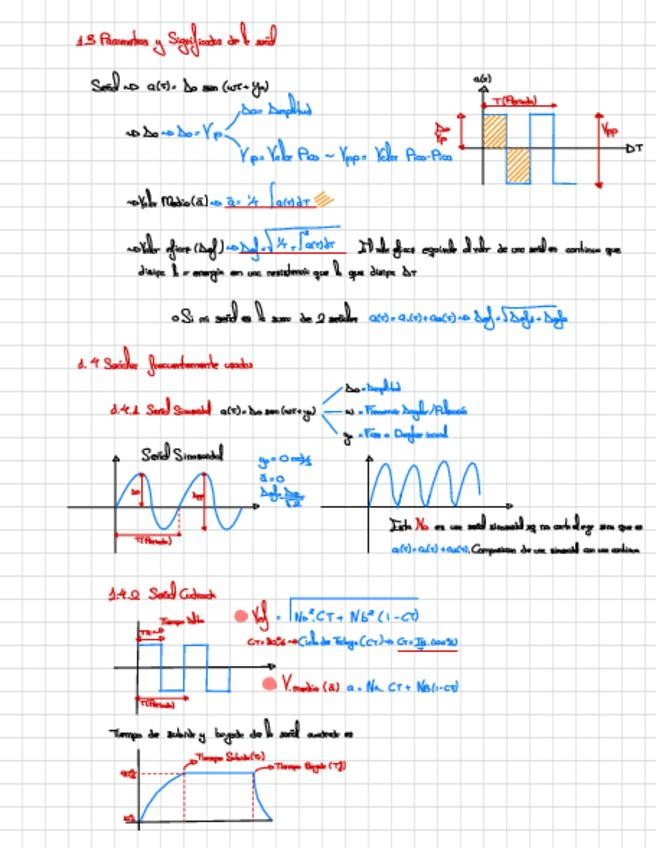 1.3 Parametros y Significados de la señal
Señal => a(t) = A0 sen (wt + φ0)
A0 = Amplitud
=> A0 => A0 = Vp
Vp = Valor Pico ~ Vpp = Valor Pico-Pico
a(t)
T (Periodo)
A0
Vp
Vpp
DT
=> Valor Medio (ā) => ā = 1/T ∫ a(t)dt
=> Valor eficaz (Aef) => Aef = √1/T · ∫² a(t)dt El valor eficaz equivale al valor de una señal en continua que
disipe la = energia en una resistencia que la que disipe AT
o Si mi señal es la suma de 2 señales a(t) = a1(t) + a2(t) => Aef = √Aef1 + Aef2
1.4 Señales frecuentemente usadas
1.4.1 Señal Sinusoidal a(t) = A0 sen (wt + φ0)
A0 = Amplitud
w = Frecuencia Angular / Pulsación
φ0 = Fase
Señal Sinusoidal
ā = 0
Aef = A0/√2
A0
App
T (Periodo)
Esta No es una señal sinusoidal
a(t) = a1(t) + a2(t). Composicion de una sinusoidal con una continua
1.4.2 Señal Cuadrada
Tiempo Alto
T (Periodo)
Vef = √Na² · CT + Nb² (1 - CT)
Ciclo de Trabajo (CT)
V. medio (ā) a = Na CT + Nb (1 - CT)
Tiempo de subida y bajada de la señal cuadrada
Tiempo Subida (Tr)
Tiempo Bajada (Tf)
90%
10%